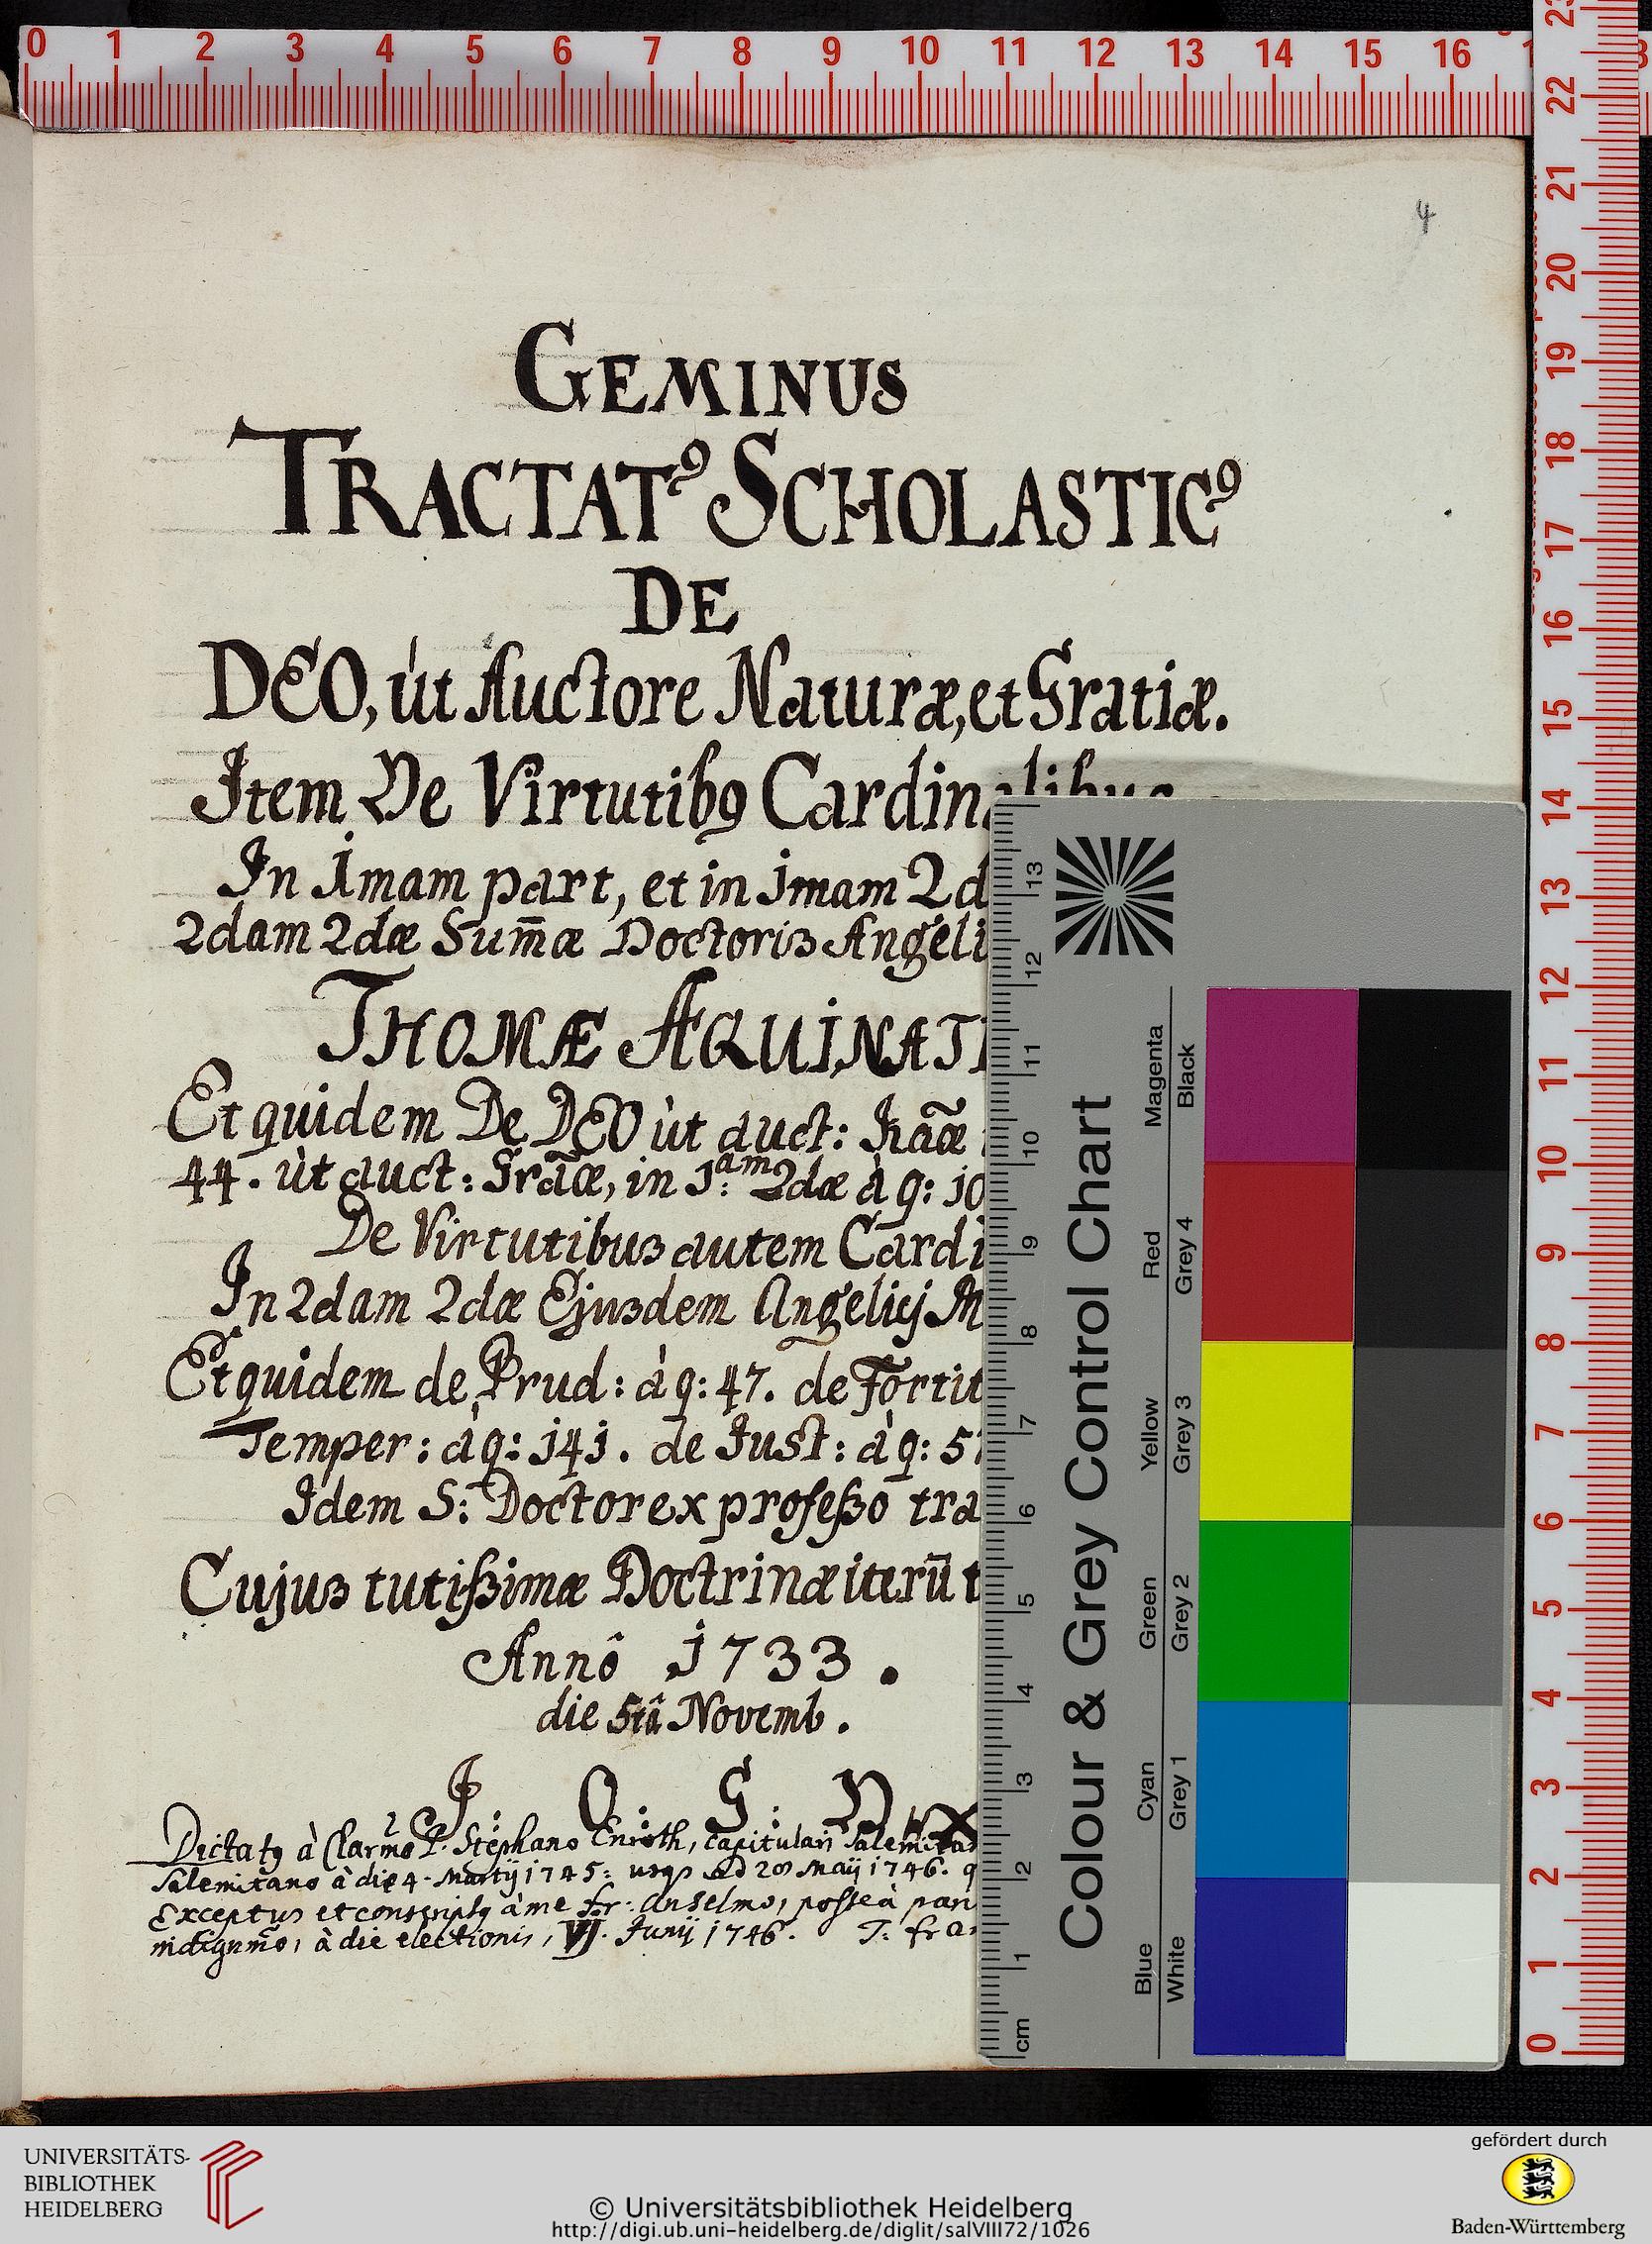 4
GEMINUS
TRACTATꝰ SCHOLASTICꝰ
DE
DEO, ùt Auctore Naturæ, et Gratiæ.
Item De Virtutibꝰ Cardinalibus
In 1mam part, et in 1mam 2d
2dam 2dæ Sum̄æ Doctoris Angeli
THOMÆ AQUINATI
Et quidem De DEO ùt auct: Nãæ
44. ùt auct: Grãæ, in 1:am 2dæ à q: 10
De Virtutibus autem Cardi
In 2dam 2dæ Ejusdem Angelicj M
Et quidem de Prud: à q: 47. de Fortit
Temper: à q: 141. de Just: à q: 57
Idem S: Doctor ex professo tra
Cujus tutissimæ Doctrinæ iterū t
Annô 1733.
die 5tâ Novemb.
J: O: G: D:
Dictatꝰ à Clarmo P. Stephano Enroth, capitulari Salemita
Salemitano à die 4. Martij 1745: usqꝫ ad 20 Maij 1746. q
Exceptus et conscriptꝰ à me fr: Anselmo, postea pan
indignmo, à die electionis, VI. Junij 1746. T: fra
0 1 2 3 4 5 6 7 8 9 10 11 12 13 14 15 16
23
22
21
20
19
18
17
16
15
14
13
12
11
10
9
8
7
6
5
4
3
2
1
0
13
12
11
10
9
8
7
6
5
4
3
2
1
cm
Colour & Grey Control Chart
Magenta
Black
Red
Grey 4
Yellow
Grey 3
Green
Grey 2
Cyan
Grey 1
Blue
White
UNIVERSITÄTS-
BIBLIOTHEK
HEIDELBERG
© Universitätsbibliothek Heidelberg
http://digi.ub.uni-heidelberg.de/diglit/salVIII72/1026
gefördert durch
Baden-Württemberg